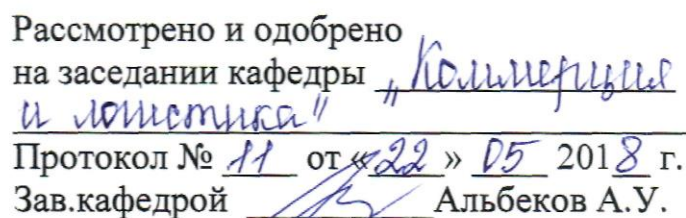 Рассмотрено и одобрено
на заседании кафедры „Коммерция
и логистика"
Протокол № 11 от «22» 05 2018 г.
Зав.кафедрой Альбеков А.У.